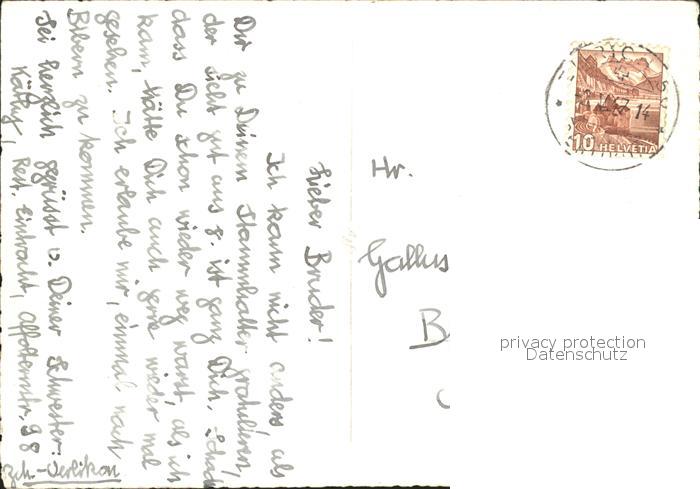 Lieber Bruder!
Ich kann nicht anders, als
Dir zu Deinem Stammhalter gratulieren,
der sieht gut aus &. ist ganz Dich. Schade
dass Du schon wieder weg warst, als ich
kam, hätte Dich auch gerne wieder mal
gesehen. Ich erlaube mir, einmal nach
Bibern zu kommen.
Sei herzlich gegrüsst v. Deiner Schwester:
Käthy, Rest. Eintracht, Affolternstr. 98
Zch.-Oerlikon
Hr.
Gallus
B
10 HELVETIA
14
privacy protection
Datenschutz